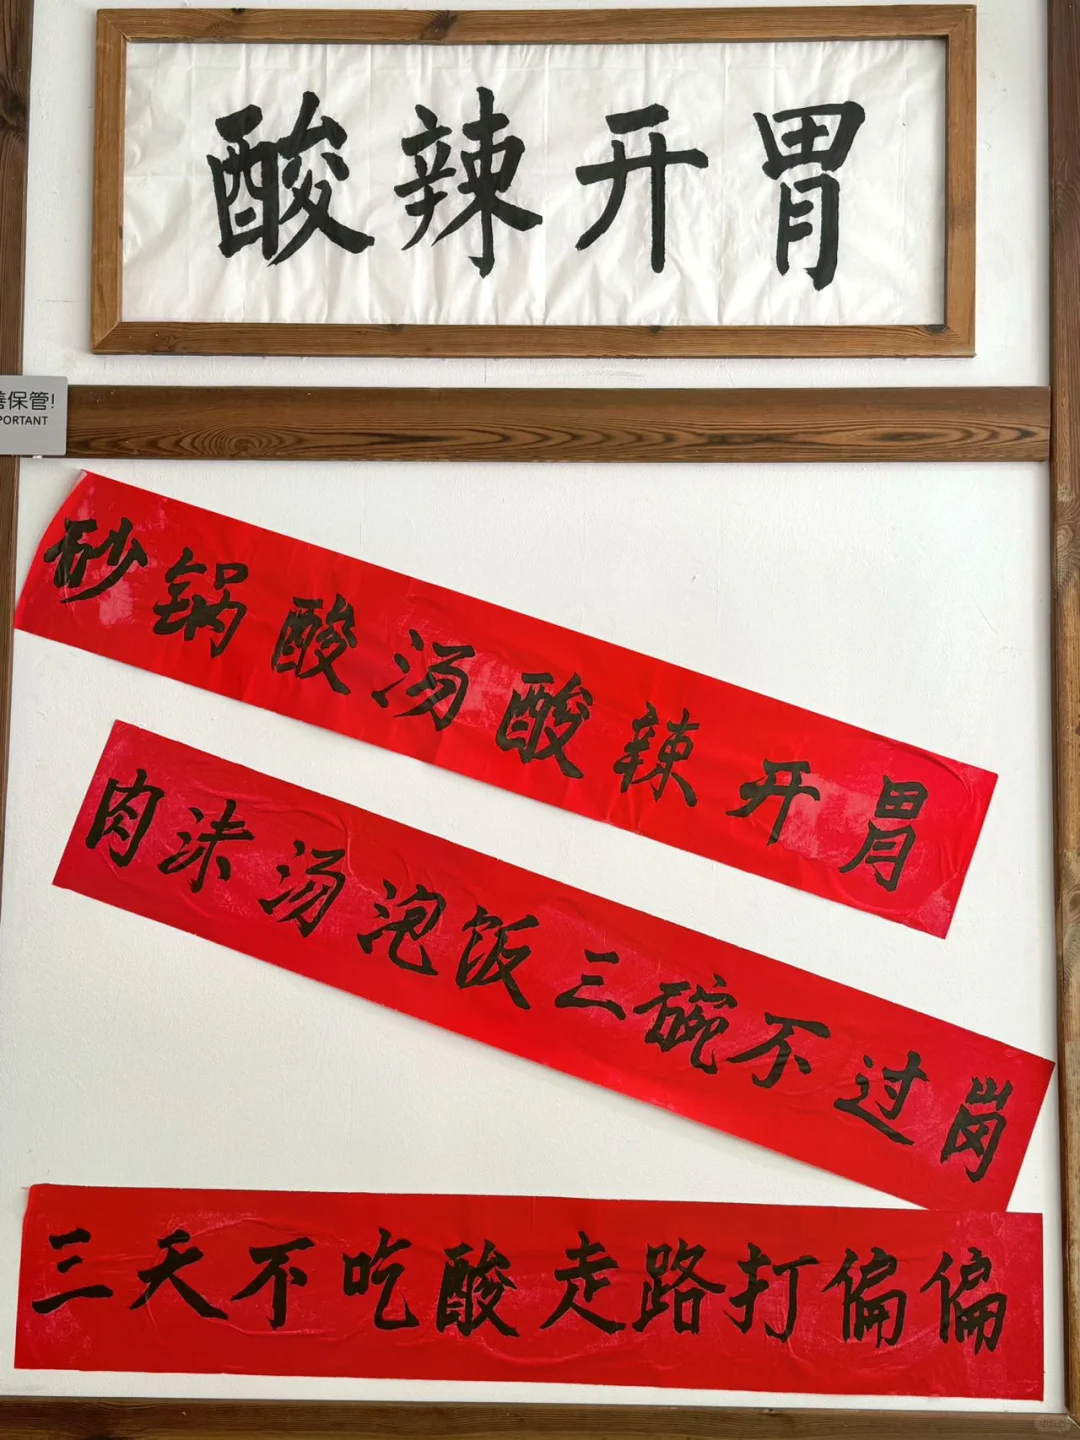 酸辣开胃
善保管!
PORTANT
砂锅酸汤酸辣开胃
肉沫汤泡饭三碗不过岗
三天不吃酸走路打偏偏